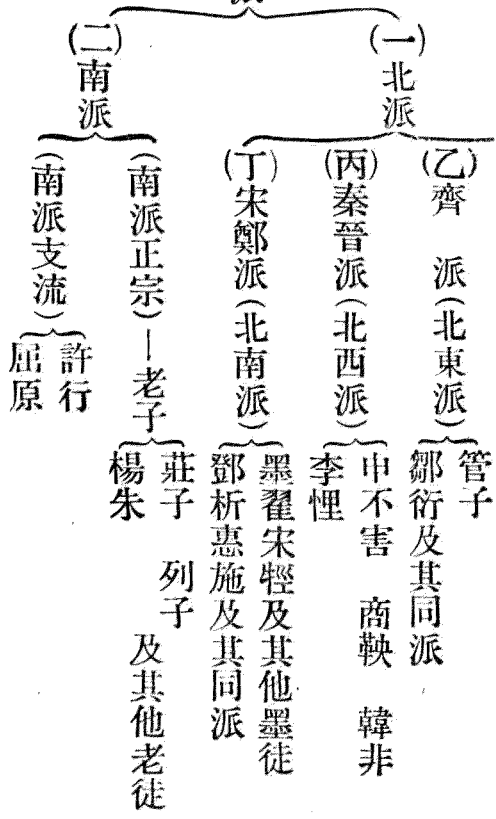 (一)北派
(乙)齊 派(北東派)
管子
鄒衍及其同派
(丙)秦晉派(北西派)
申不害 商鞅 韓非
李悝
(丁)宋鄭派(北南派)
墨翟宋牼及其他墨徒
鄧析惠施及其同派
(二)南派
(南派正宗)—老子
莊子 列子
楊朱
及其他老徒
(南派支流)
許行
屈原